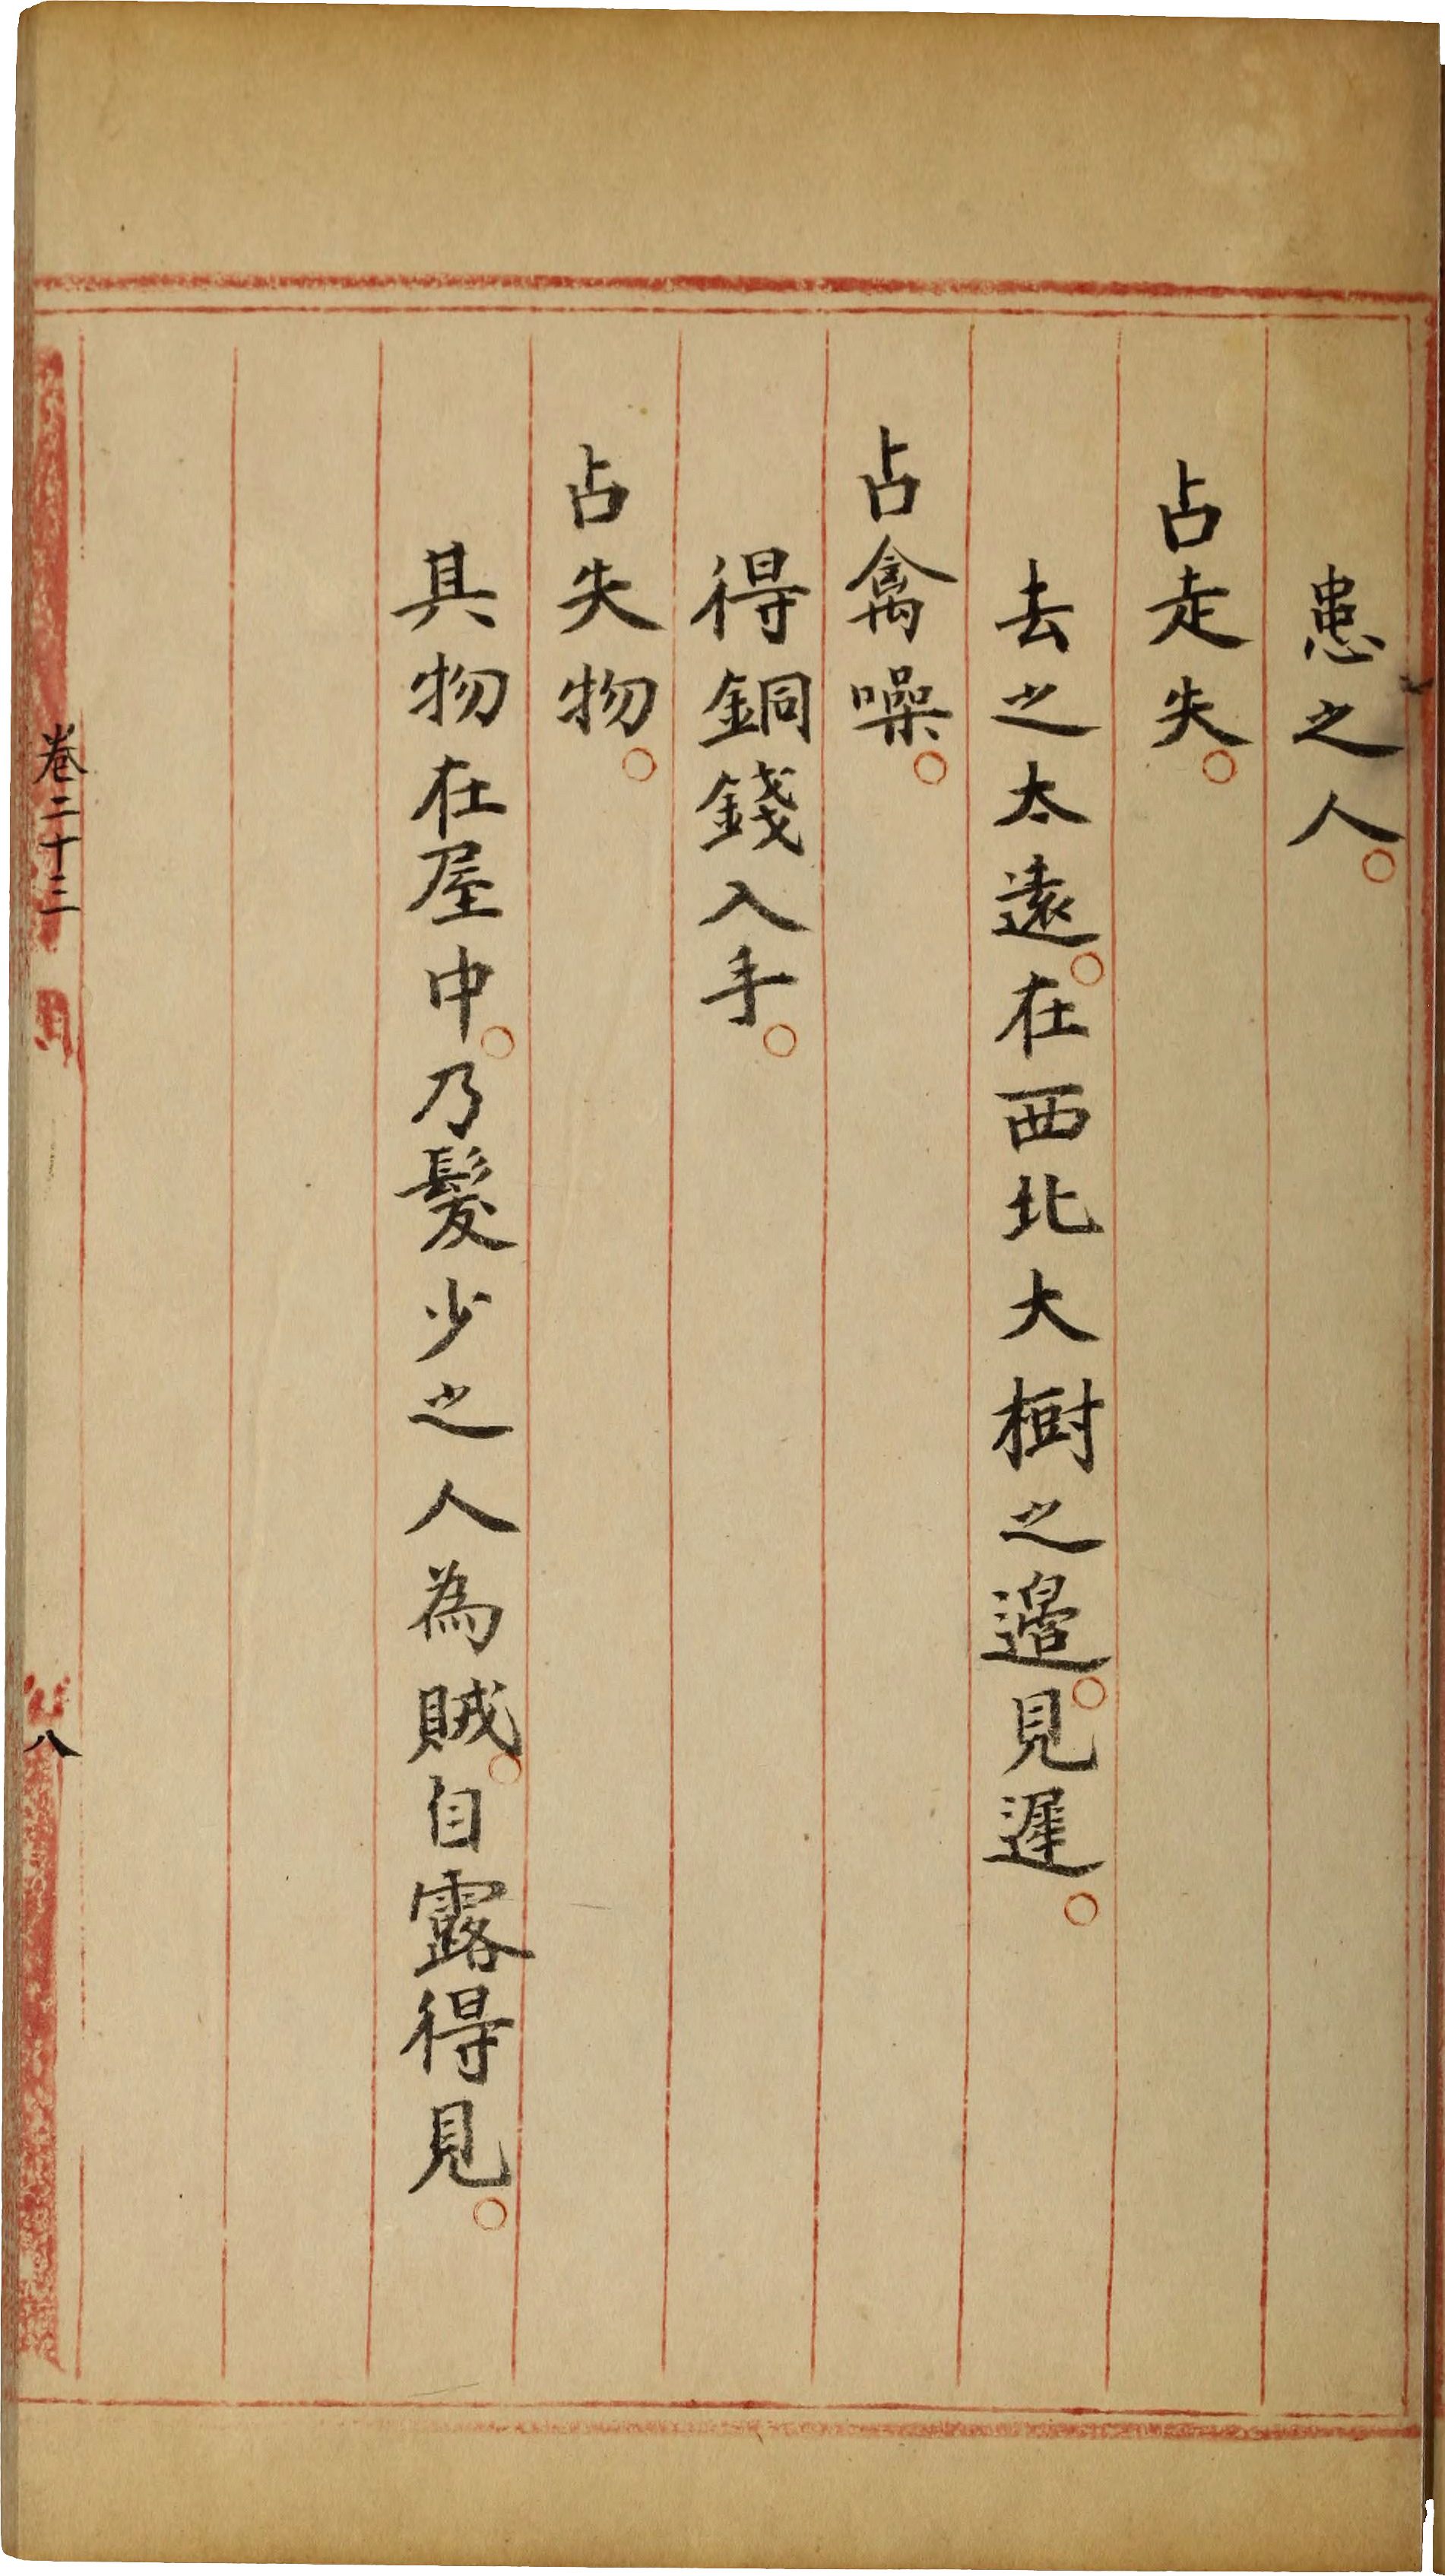 患之人。
占走失。
去之太遠。在西北大樹之邉。見遲。
占禽噪。
得銅錢入手。
占失物。
其物在屋中。乃髮少之人為賊。自露得見。
卷二十三
八